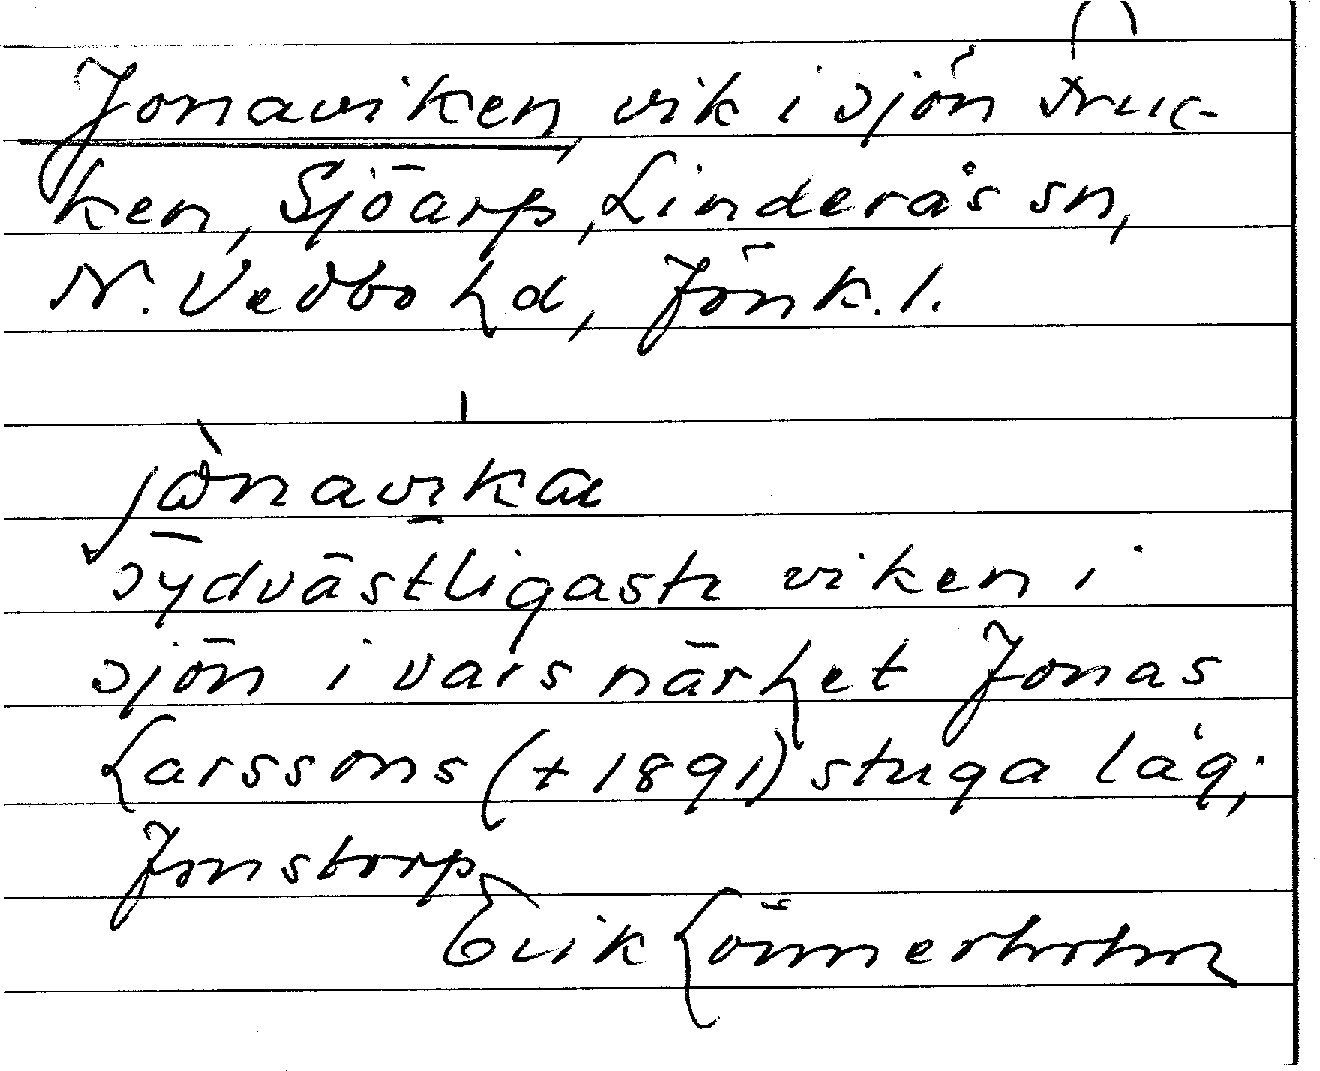 Jonaviken, vik i sjön Bruc-
ken, Sjöarp, Linderås sn,
N. Vedbo hd, Jönk. l.
sydvästligaste viken i
sjön i vars närhet Jonas
Larssons (+ 1891) stuga låg;
Jonstorp
Erik Lönnerholm